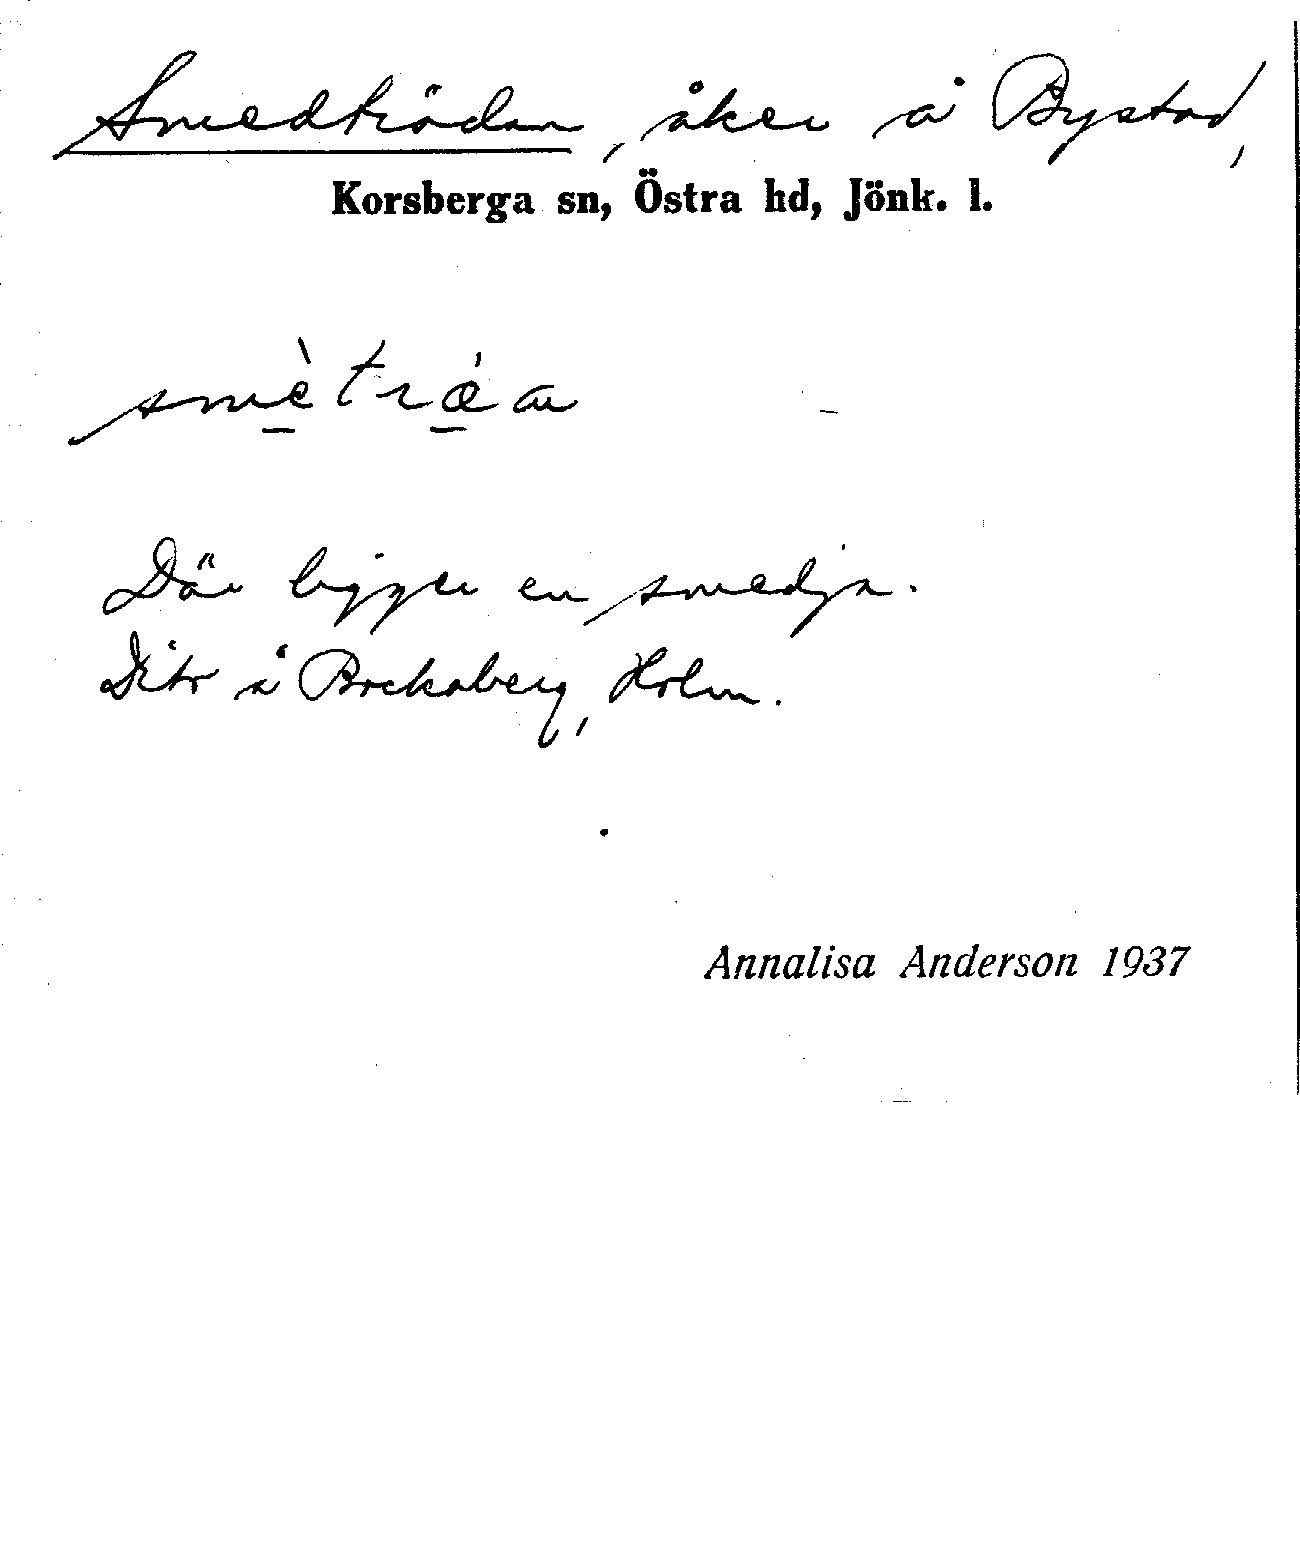 Smedträdan, åker å Bystad,
Korsberga sn, Östra hd, Jönk. l.
smè̠trǽ̠an
Där ligger en smedja.
Dito å Bockaberg, Holm.
Annalisa Anderson 1937